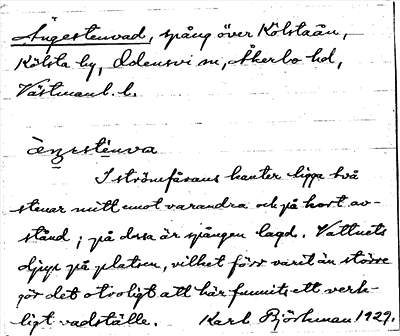 Ängestenvad, spång över Kölstaån,
Kölsta by, Odensvi sn, Åkerbo hd,
Västmanl. l.
I strömfårans kanter ligga två
stenar mitt emot varandra och på kort av-
stånd; på dessa är spången lagd. Vattnets
djup på platsen, vilket förr varit än större
gör det otroligt att här funnits ett verk-
ligt vadställe. Karl Björkman 1929.